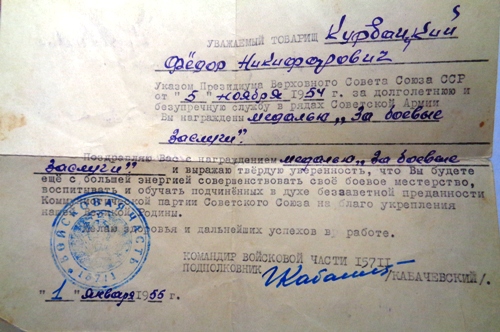 УВАЖАЕМЫЙ ТОВАРИЩ Курбацкий
Фёдор Никифорович
Указом Президиума Верховного Совета Союза ССР
от "5" ноября 1954 г. за долголетнюю и
безупречную службу в рядах Советской Армии
Вы награждены медалью „За боевые
заслуги".
Поздравляю Вас с награждением медалью „За боевые
заслуги" и выражаю твёрдую уверенность, что Вы будете
ещё с большей энергией совершенствовать своё боевое мастерство,
воспитывать и обучать подчинённых в духе беззаветной преданности
Коммунистической партии Советского Союза на благо укрепления
нашей Родины.
Желаю здоровья и дальнейших успехов в работе.
КОМАНДИР ВОЙСКОВОЙ ЧАСТИ 15711
ПОДПОЛКОВНИК /КАБАЧЕВСКИЙ/.
"1" января 1955 г.
ВОЙСКОВАЯ ЧАСТЬ